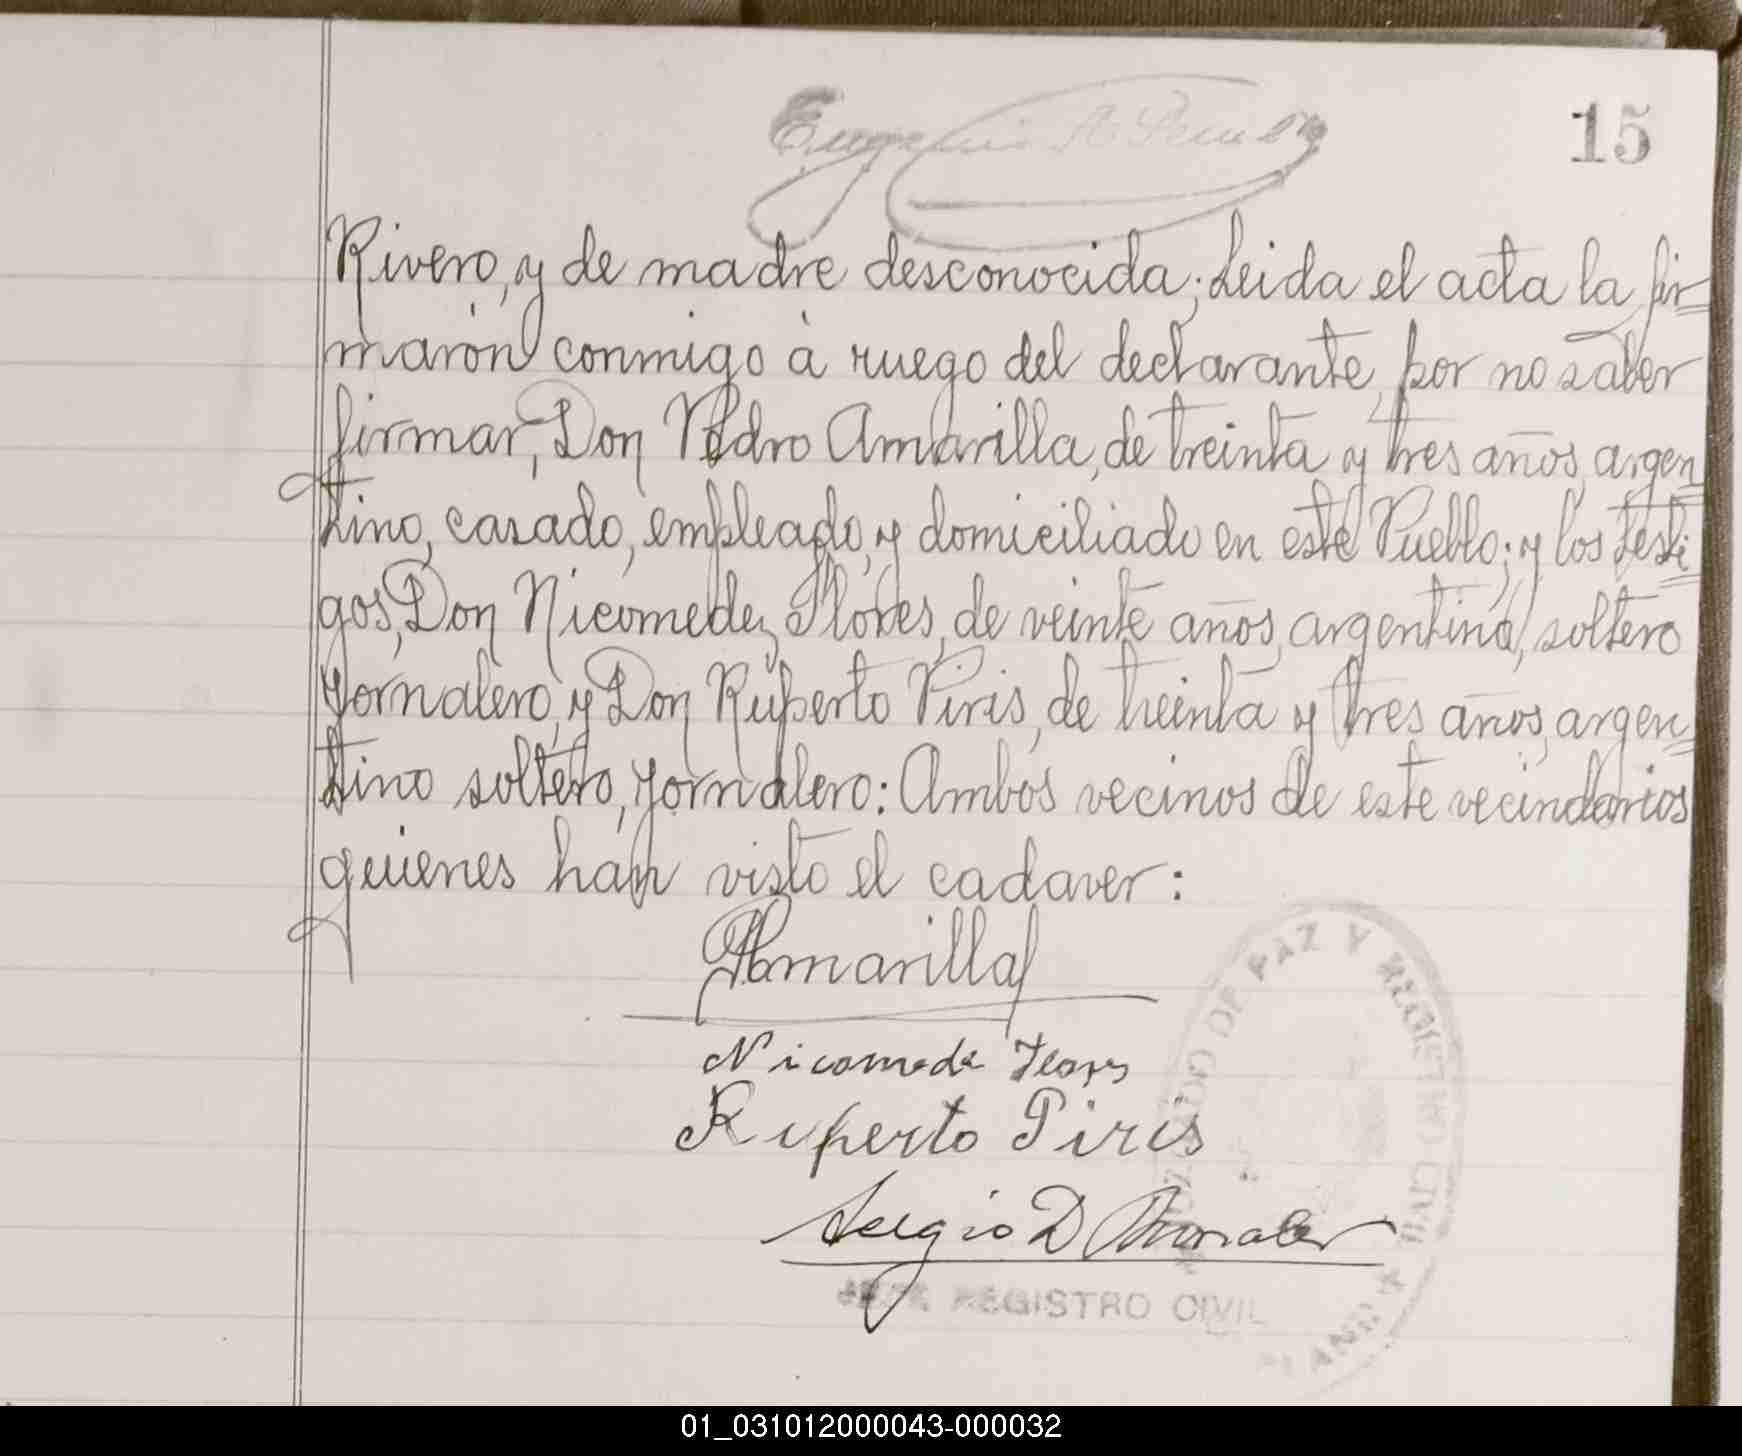 15
Eugenio A
Rivero, y de madre desconocida; Leida el acta la fir=
maron conmigo à ruego del declarante, por no saber
firmar, Don Pedro Amarilla, de treinta y tres años, argen=
tino, casado, empleado, y domiciliado en este Pueblo; y los testi=
gos, Don Nicomedez Flores, de veinte años, argentino, soltero
Jornalero, y Don Ruperto Piris, de treinta y tres años, argen=
tino soltero, jornalero: Ambos vecinos de este vecindarios
quienes han visto el cadaver:
PAmarilla
Nicomede Flores
Ruperto Piris
Sergio D Morales
JEFE REGISTRO CIVIL
JUZGADO DE PAZ Y REGISTRO CIVIL
01_031012000043-000032